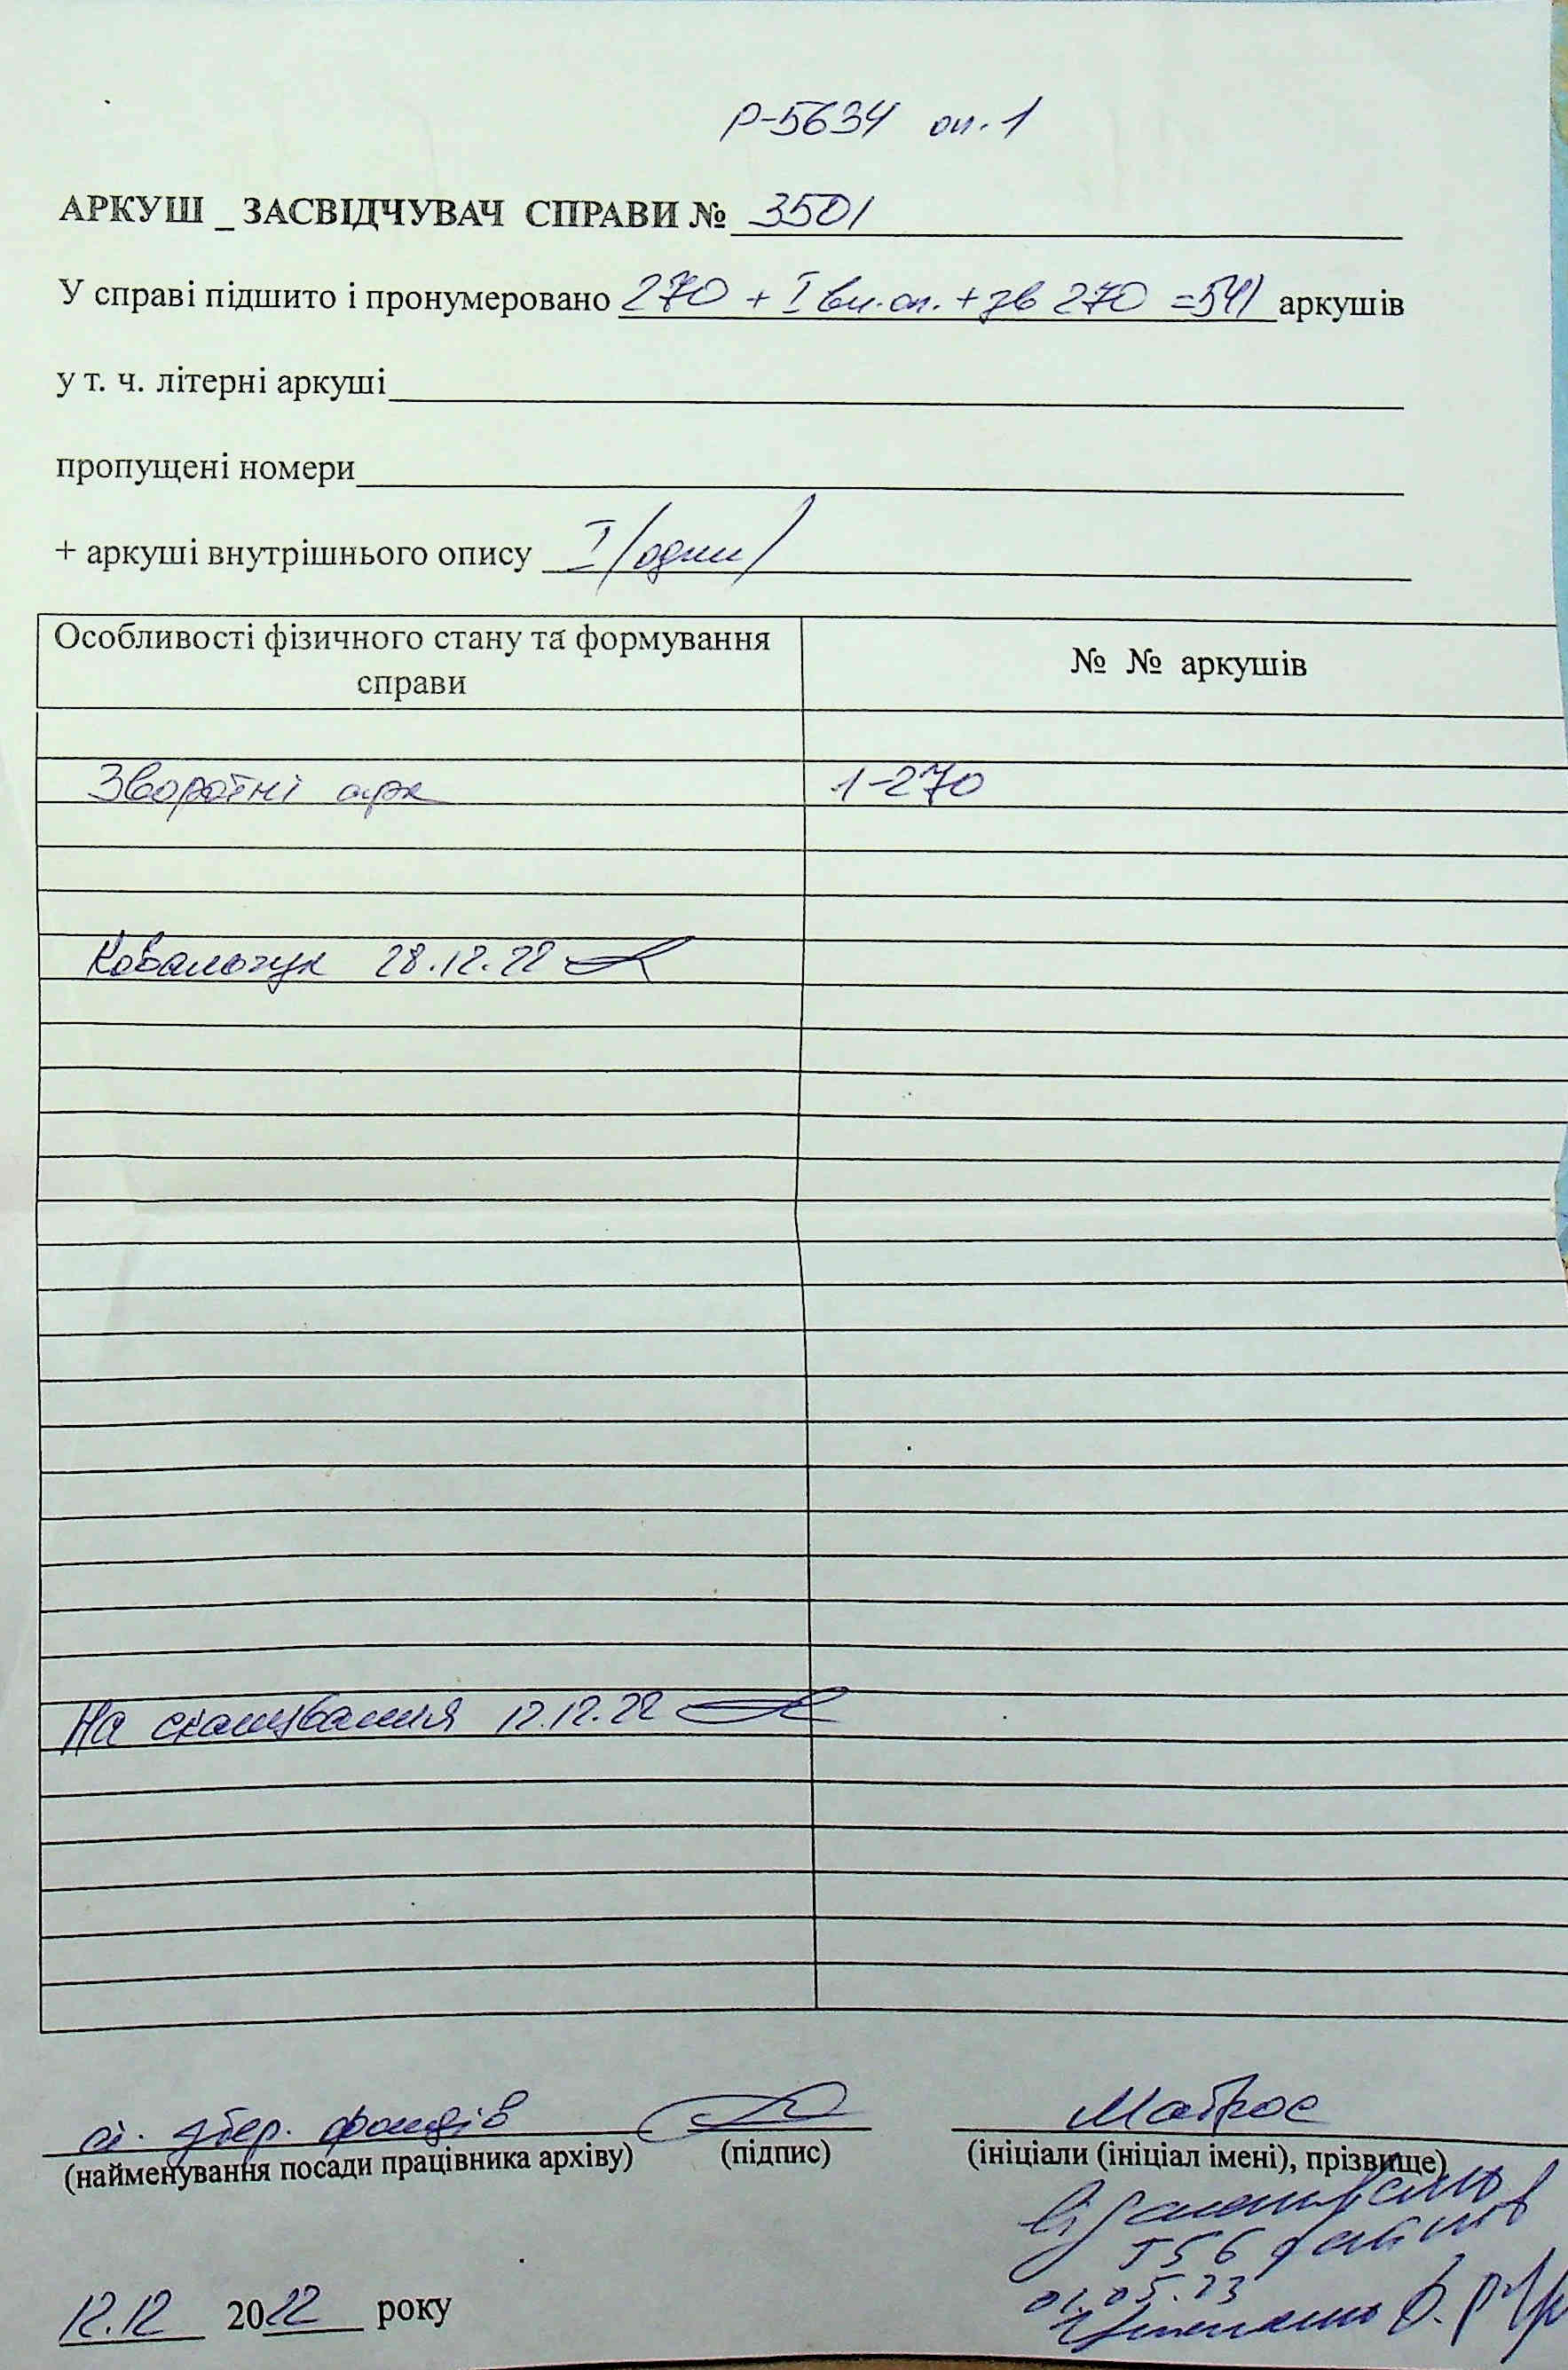 Р-5634 оп. 1
АРКУШ _ ЗАСВІДЧУВАЧ СПРАВИ № 3501
У справі підшито і пронумеровано 270 + I вн. оп. + зв 270 = 541 аркушів
у т. ч. літерні аркуші
пропущені номери
+ аркуші внутрішнього опису I /один/
Особливості фізичного стану та формування справи
№ № аркушів
Зворотні арк 1-270
Ковальчук 28.12.22
На сканування 12.12.22
збер. фондів Матрос
(найменування посади працівника архіву) (підпис) (ініціали (ініціал імені), прізвище)
Відскановано
556 файлів
01.05.23
12.12 2022 року